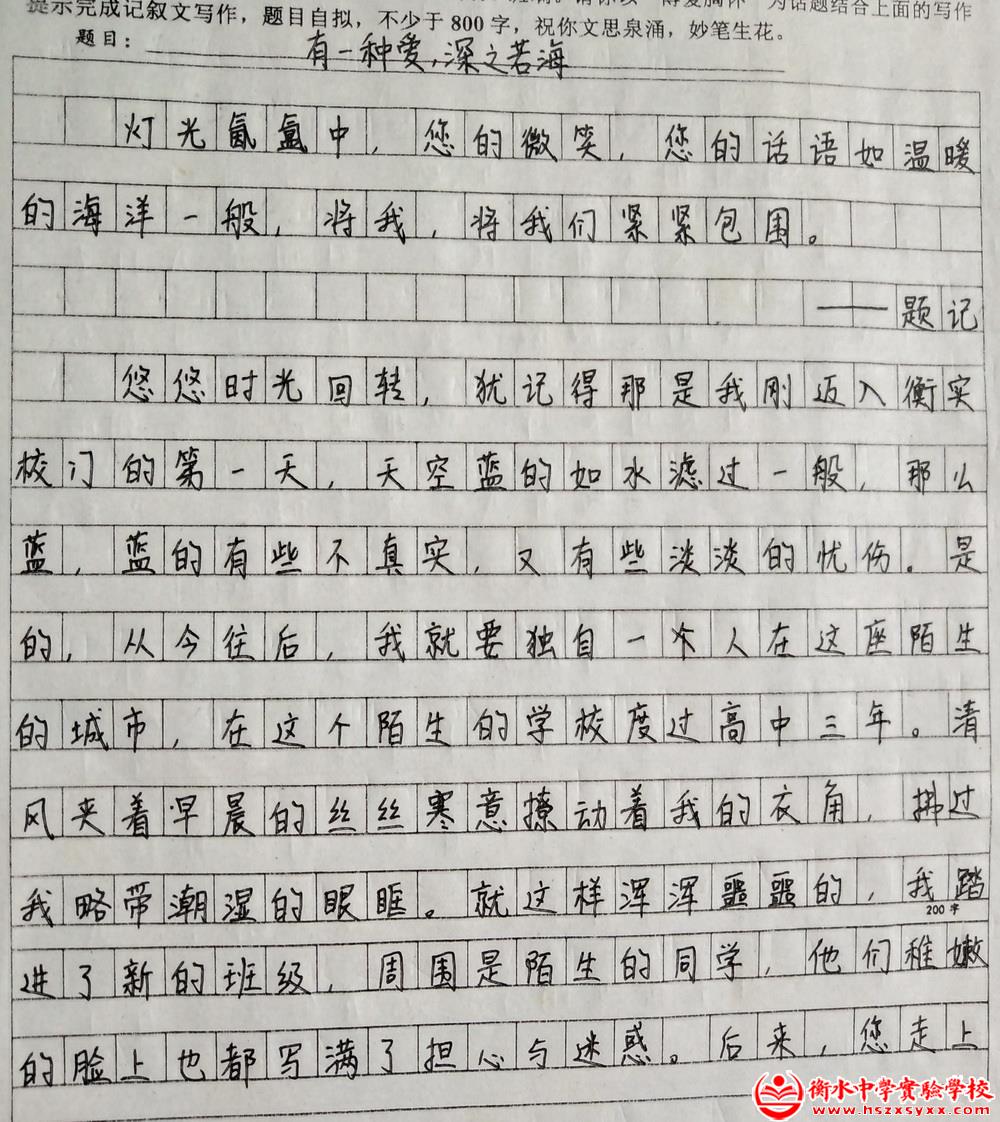 提示完成记叙文写作，题目自拟，不少于800字，祝你文思泉涌，妙笔生花。
为话题结合上面的写作
题目：有一种爱，深之若海
灯光氤氲中，您的微笑，您的话语如温暖
的海洋一般，将我，将我们紧紧包围。
——题记
悠悠时光回转，犹记得那是我刚迈入衡实
校门的第一天，天空蓝的如水滤过一般，那么
蓝，蓝的有些不真实，又有些淡淡的忧伤。是
的，从今往后，我就要独自一个人在这座陌生
的城市，在这个陌生的学校度过高中三年。清
风夹着早晨的丝丝寒意撩动着我的衣角，拂过
我略带潮湿的眼眶。就这样浑浑噩噩的，我踏
200字
进了新的班级，周围是陌生的同学，他们稚嫩
的脸上也都写满了担心与迷惑。后来，您走上
衡水中学實驗學校
www.hszxsyxx.com